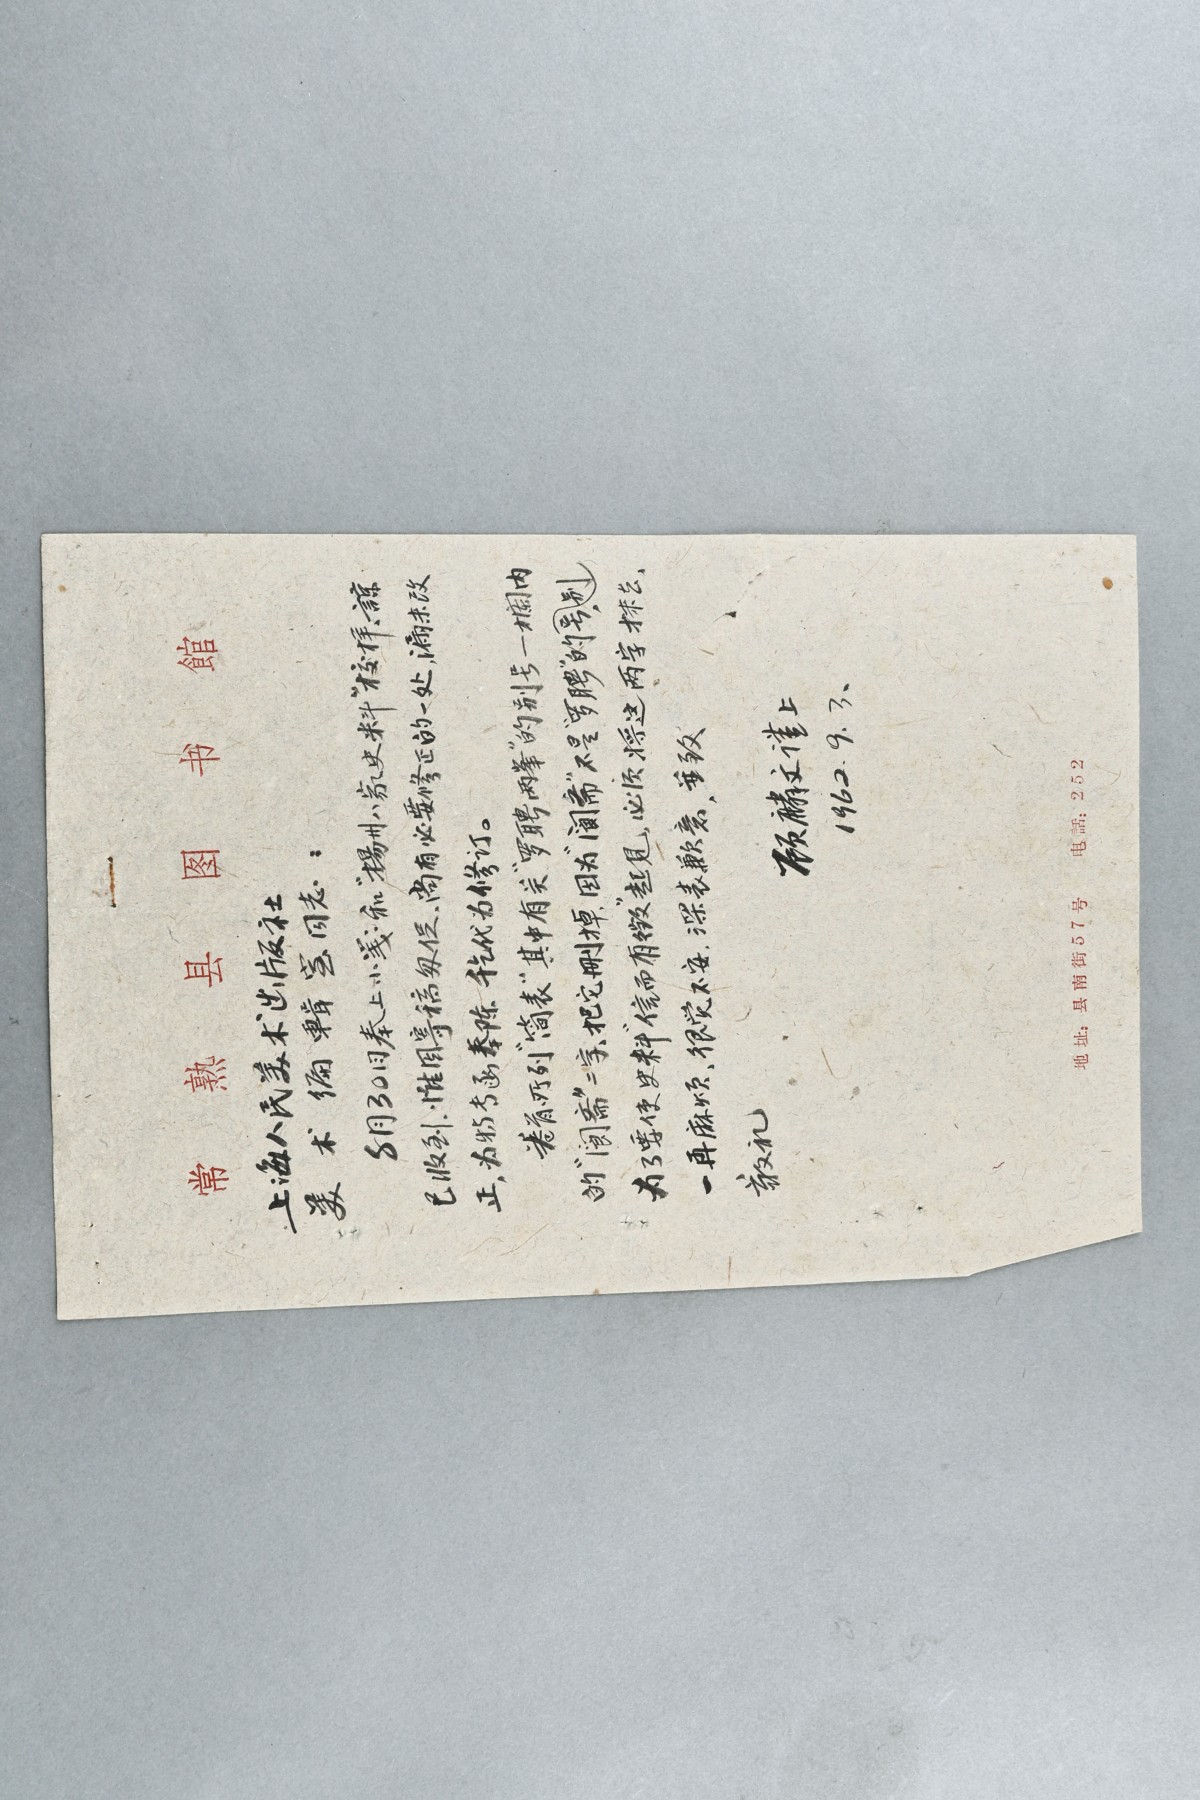 常熟县图书館
上海人民美术出版社
美术编輯室同志：
8月30日奉上小笺和"揚州八家史料"校样、諒
已收到、惟因寄稿匆促、尚有必要修正的一处，漏未改
正，为特专函奉陈 乞代为修订。
卷首所列"简表"其中有关"罗聘两峯"的别号一栏内
的"阆斋"二字、把它刪掉，因为"阆斋"不是"罗聘"的号别
为了要使史料"信而有徵"起見，必须将这两字抹去、
一再麻烦、很觉不安，深表歉意，並致
敬礼
顾麟文谨上
1962.9.3、
地址：县南街57号 电話：252